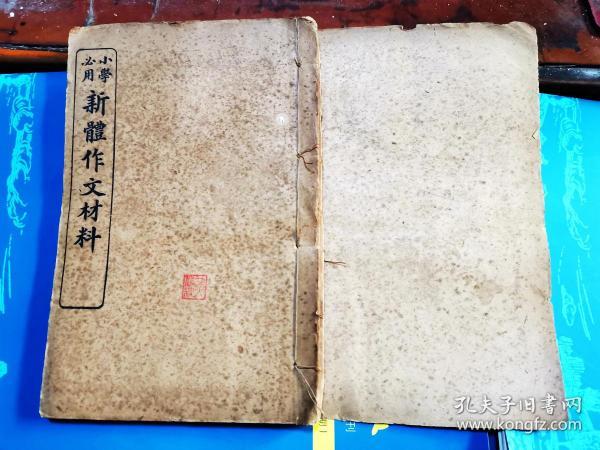 小學
必用
新體作文材料
刊
孔夫子旧书网
www.kongfz.com